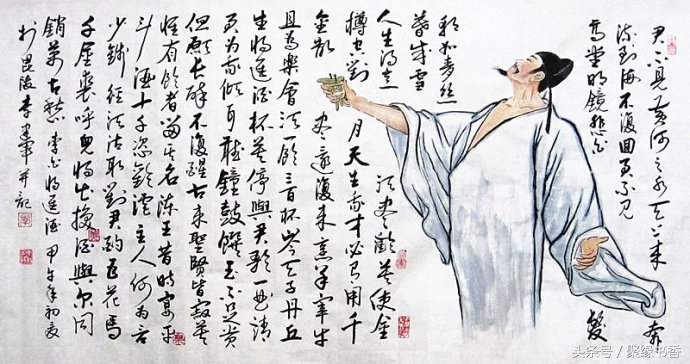 君不見黃河之水天上來奔
流到海不復回君不見
高堂明鏡悲白髮
朝如青絲
暮成雪
人生得意須盡歡莫使金
樽空對月天生我才必有用千
金散盡還復來烹羊宰牛
且為樂會須一飲三百杯岑夫子丹丘
生將進酒杯莫停與君歌一曲請
君为我傾耳聽鐘鼓饌玉不足貴
但願長醉不復醒古來聖賢皆寂寞
惟有飲者留其名陳王昔時宴平
斗酒十千恣歡謔主人何為言
少錢徑須沽取對君酌五花馬
千金裘呼兒將出換酒與爾同
銷萬古愁 李白將進酒 甲午年初夏
於 陵李 軍并記
头条号 / 聚缘书香